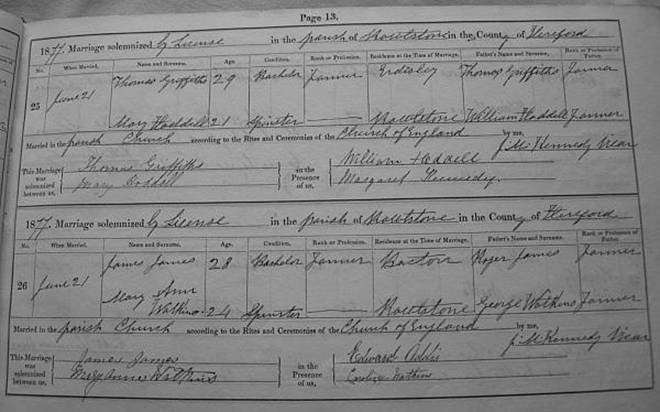 Page 13.
1877. Marriage solemnized by License in the parish of Rowlstone in the County of Hereford
No. When Married. Name and Surname. Age. Condition. Rank or Profession. Residence at the Time of Marriage. Father's Name and Surname. Rank or Profession of Father.
25 June 21 Thomas Griffiths 29 Bachelor Farmer Eardisley Thomas Griffiths Farmer
Mary Haddell 21 Spinster Rowlstone William Haddell Farmer
Married in the parish Church according to the Rites and Ceremonies of the Church of England by me,
Kennedy Vicar
This Marriage was solemnized between us, Thomas Griffiths in the Presence of us, William
Mary Margaret Kennedy.
1877. Marriage solemnized by License in the parish of Rowlstone in the County of Hereford
No. When Married. Name and Surname. Age. Condition. Rank or Profession. Residence at the Time of Marriage. Father's Name and Surname. Rank or Profession of Father.
26 June 21 James James 28 Bachelor Farmer Bacton Roger James Farmer
Mary Ann
Watkins 24 Spinster Rowlstone George Watkins Farmer
Married in the parish Church according to the Rites and Ceremonies of the Church of England by me,
Kennedy Vicar
This Marriage was solemnized between us, James James in the Presence of us, Edward Addis
Mary Anne Watkins Caroline Watkins